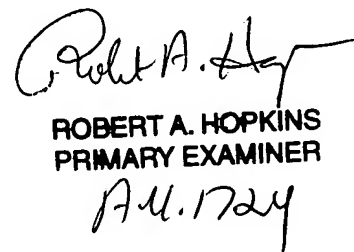 Robert A. Hop
ROBERT A. HOPKINS
PRIMARY EXAMINER
A.U. 1724